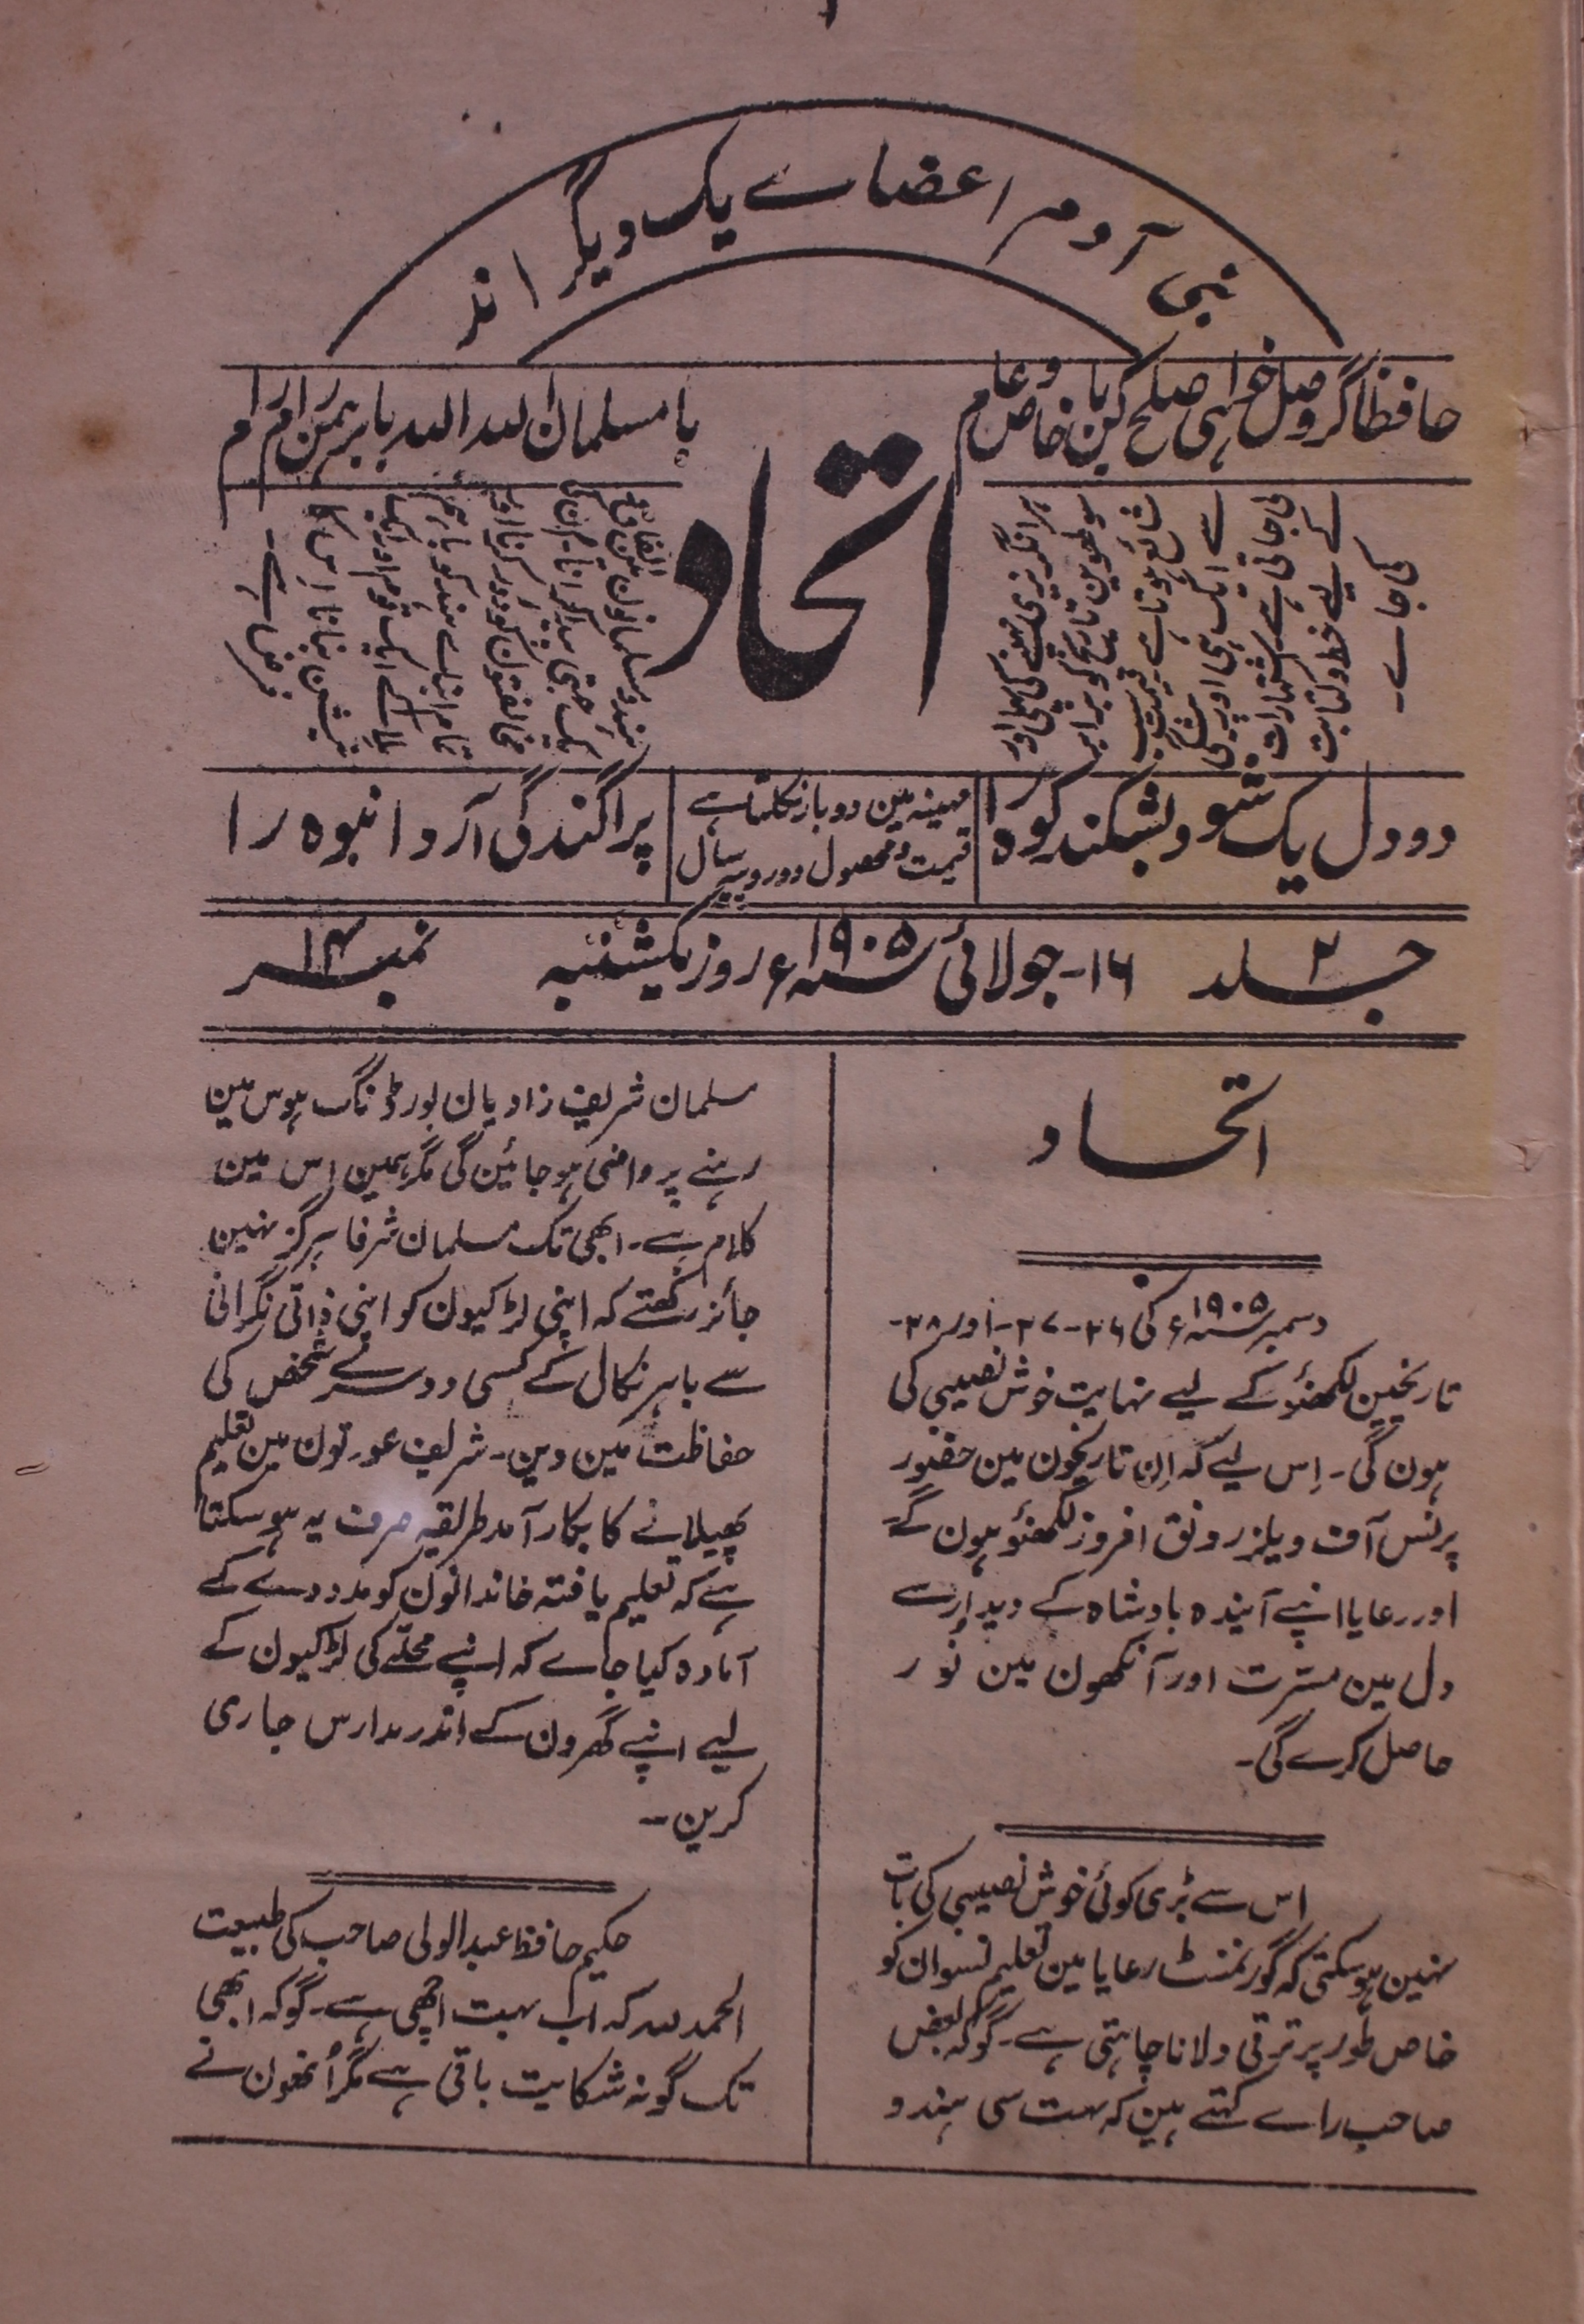 بنی آدم اعضاے یک دیگر اند
حافظا گر وصل خواہی صلح کن با خاص و عام
با مسلمان اللہ اللہ با برہمن رام رام
اتحاد
ہر انگریزی مہینے کی پہلی اور
سولھوین تاریخ کو برابر
شائع ہوتا ہے قیمت سب
سے ایک ہی اور پیشگی
لی جاتی ہے اشتہارات
کے لیے خط و کتابت
کی جاے۔
ہندو مسلمانون مین
یک جہتی پیدا کرانا۔ ان کی
مخالفتون کو دور کرنا اور
تمام ابناے ہند کو باہم
ملا کے ایک قوم اور ایک
نیشن بنانا اِس کا
فرض ہے۔
دو دل یک شود بشکند کوہ را
مہینہ مین دو بار نکلتا ہے
قیمت و محصول دو روپیہ سال
پراگندگی آرد انبوہ را
جلد ۲ ۱۶۔ جولائی سنہ ۱۹۰۵ء روز یکشنبہ نمبر ۱۴
اتحاد
دسمبر سنہ ۱۹۰۵ء کی ۲۶۔ ۲۷۔ اور ۲۸۔
تاریخین لکھنؤ کے لیے نہایت خوش نصیبی کی
ہون گی۔ اِس لیے کہ اِن تاریخون مین حضور
پرنس آف ویلز رونق افروز لکھنؤ ہون گے
اور رعایا اپنے آیندہ بادشاہ کے دیدار سے
دل مین مسرت اور آنکھون مین نور
حاصل کرے گی۔
اس سے بڑی کوئی خوش نصیبی کی بات
نہین ہوسکتی کہ گورنمنٹ رعایا مین تعلیم نسوان کو
خاص طور پر ترقی دلانا چاہتی ہے۔ گو کہ بعض
صاحب راے کہتے ہین کہ بہت سی ہندو
مسلمان شریف زادیان بورڈنگ ہوس مین
رہنے پر راضی ہو جائین گی مگر ہمین اس مین
کلام ہے۔ ابھی تک مسلمان شرفا ہرگز نہین
جائز رکھتے کہ اپنی لڑکیون کو اپنی ذاتی نگرانی
سے باہر نکال کے کسی دوسرے شخص کی
حفاظت مین دین۔ شریف عورتون مین تعلیم
پھیلانے کا بکار آمد طریقہ صرف یہ ہو سکتا
ہے کہ تعلیم یافتہ خاندانون کو مدد دے کے
آمادہ کیا جاے کہ اپنے محلے کی لڑکیون کے
لیے اپنے گھرون کے اندر مدارس جاری
کرین۔
حکیم حافظ عبدالولی صاحب کی طبیعت
الحمد للہ کہ اب بہت اچھی ہے۔ گو کہ ابھی
تک گونہ شکایت باقی ہے مگر اُنھون نے